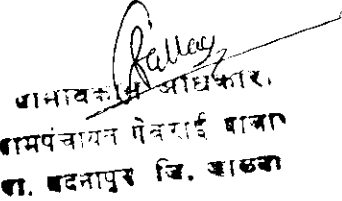 ग्रामविकास अधिकारी,
ग्रामपंचायत गेवराई बाजार
ता. बदनापुर जि. जालना